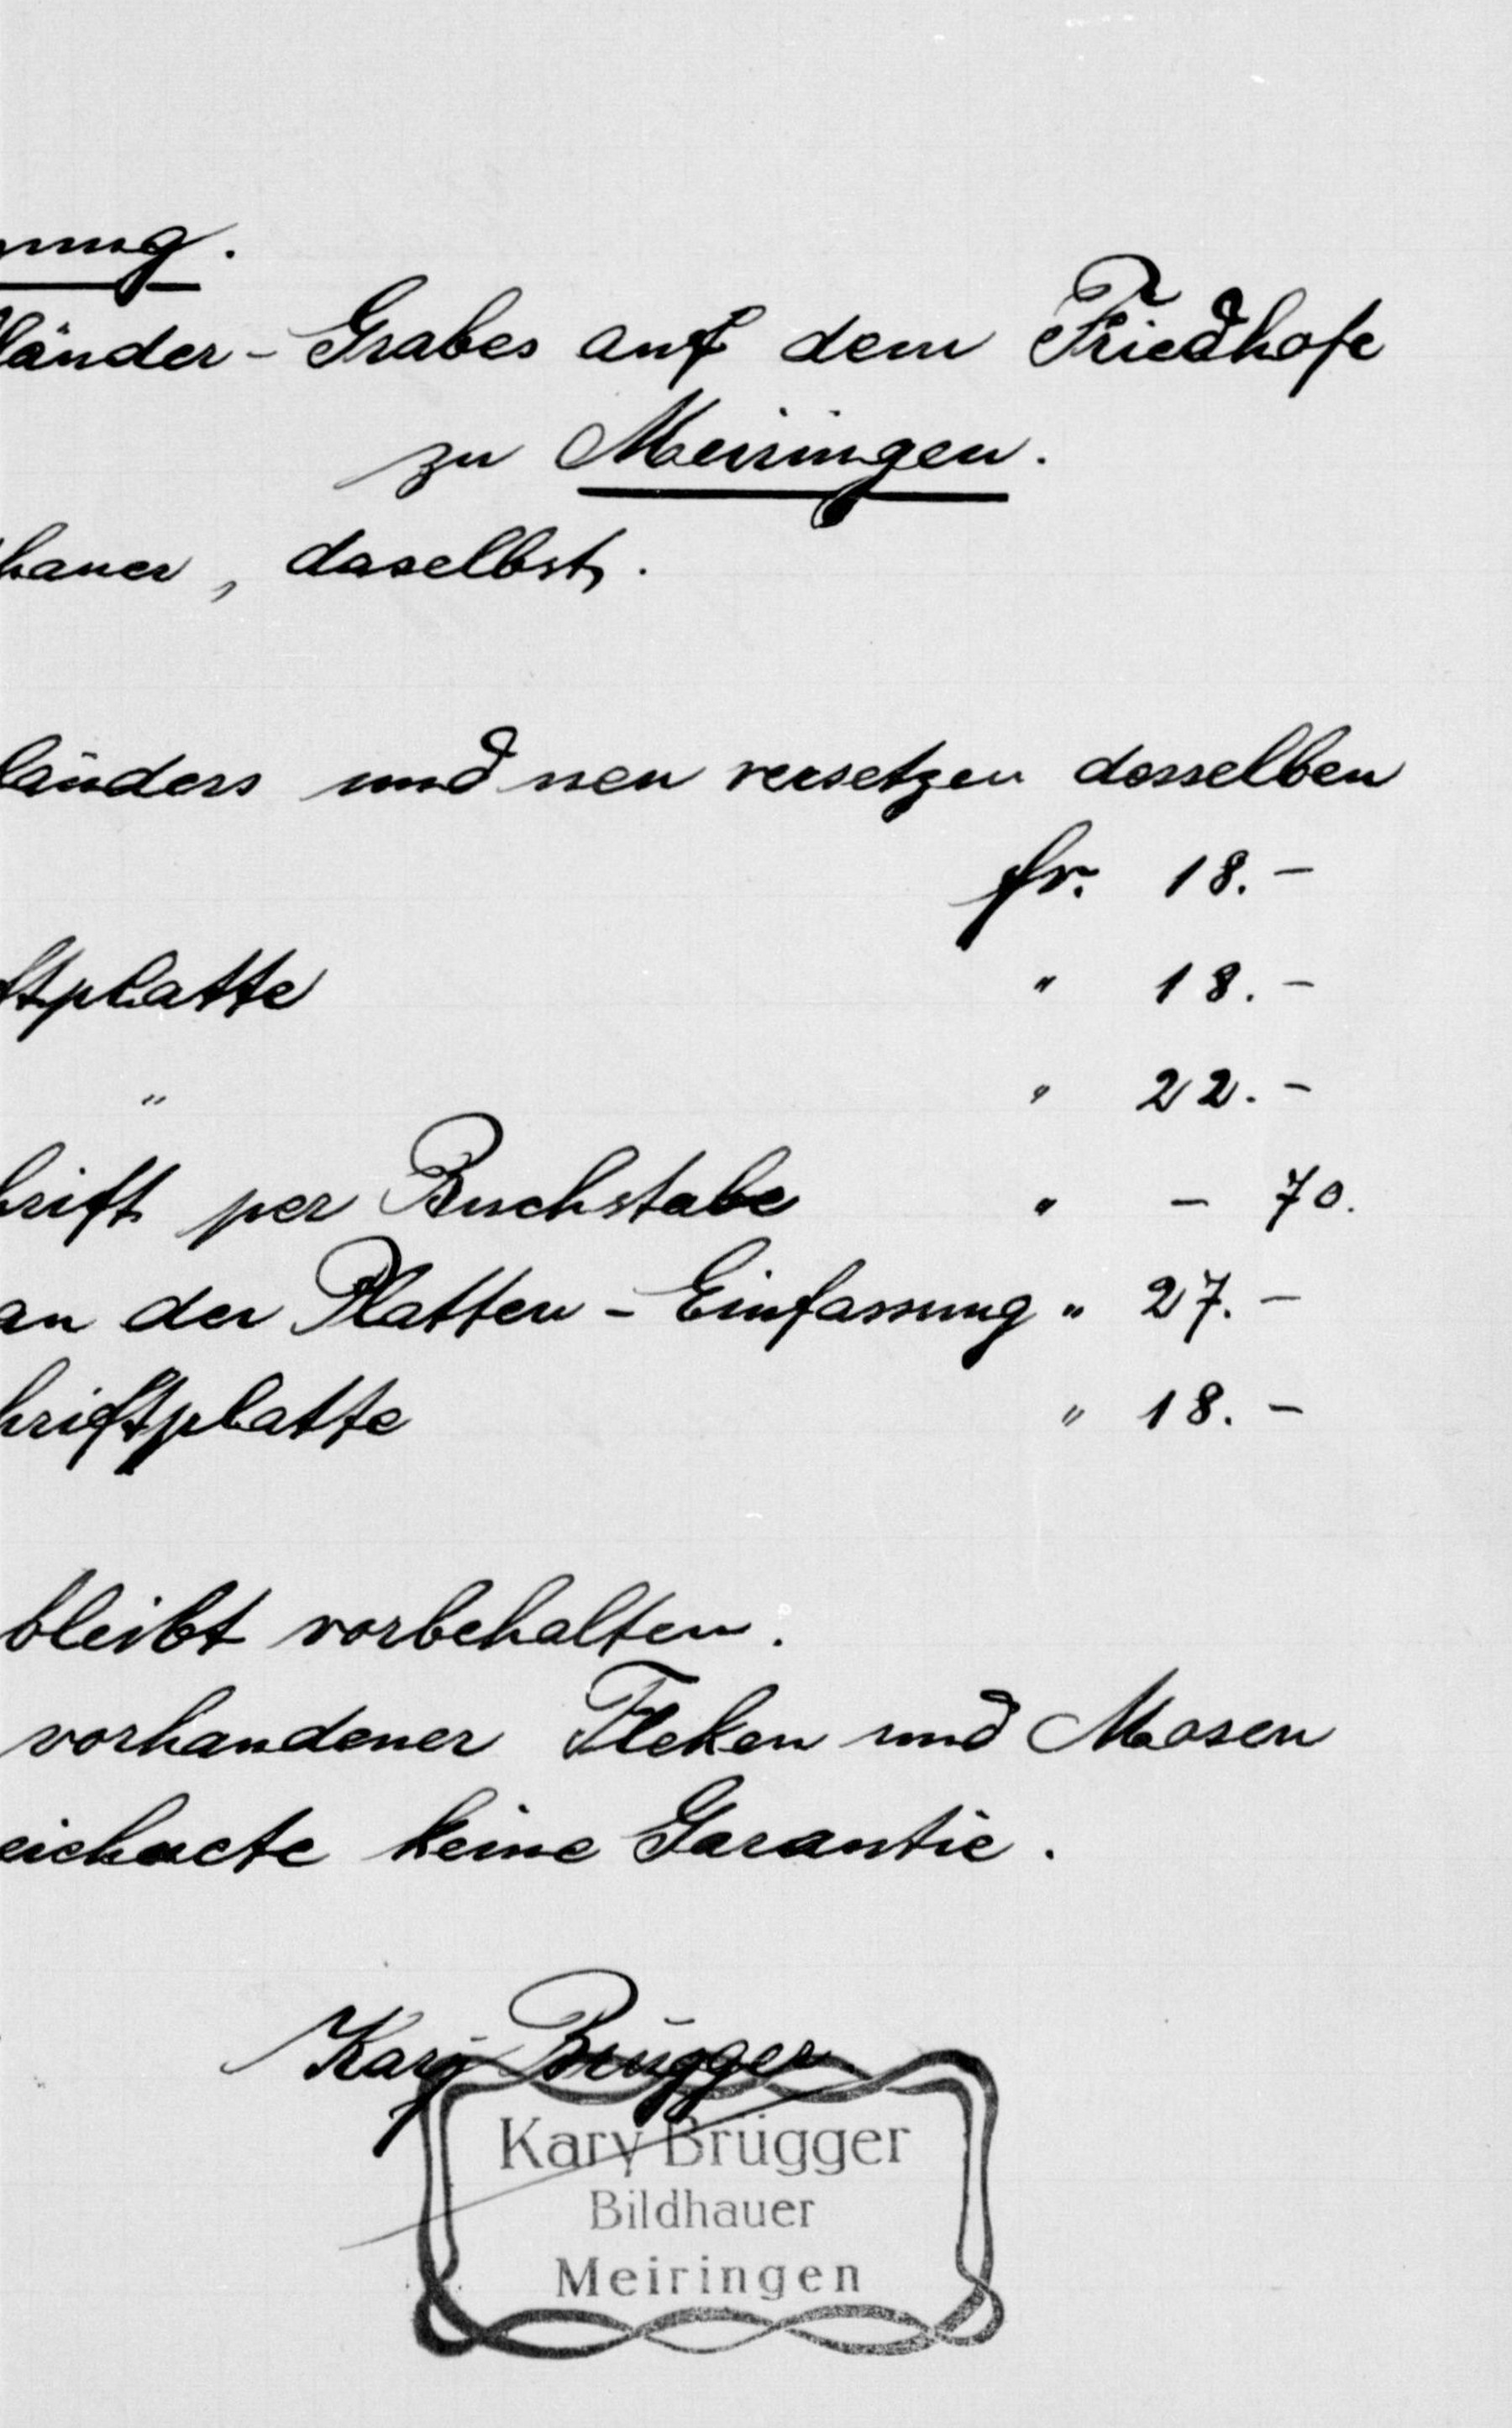 nung.
länder - Grabes auf dem Friedhofe
zu Meiringen.
hauer, daselbst.
länders und neu versetzen desselben
fr. 18.-
ftplatte " 18.-
" " 22.-
hrift per Buchstabe " - 70.
an der Platten - Einfassung " 27.-
hriftplatte " 18.-
bleibt vorbehalten.
vorhandener Fleken und Mosen
eichnete keine Garantie.
Kary Brügger
Kary Brügger
Bildhauer
Meiringen